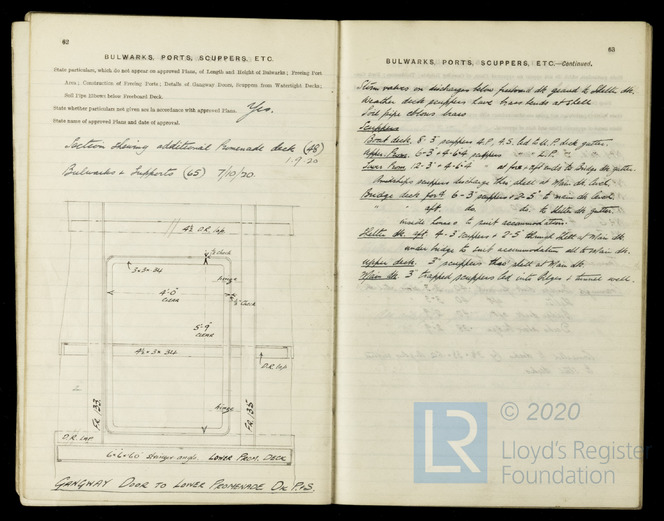 62
BULWARKS, PORTS, SCUPPERS, ETC.
State particulars, which do not appear on approved Plans, of Length and Height of Bulwarks; Freeing Port
Area; Construction of Freeing Ports; Details of Gangway Doors, Scuppers from Watertight Decks;
Soil Pipe Elbows below Freeboard Deck.
State whether particulars not given are in accordance with approved Plans. Yes.
State name of approved Plans and date of approval.
Section Shewing additional Promenade deck (48)
1.9.20
Bulwarks & Supports (65) 7/10/20.
4½ D.R. lap
3×3×.34
hinge
4'-0"
CLEAR
5'-9"
CLEAR
4½×3×.34
D.R. lap
Fr. 133
hinge
Fr. 135
D.R. LAP
6×6×.60 stringer angle. LOWER PROM. DECK
GANGWAY DOOR TO LOWER PROMENADE DK P&S.
63
BULWARKS, PORTS, SCUPPERS, ETC.—Continued.
Storm valves on discharges below freeboard dk geared to Shelter dk.
Weather deck scuppers have brass bends at shell
Soil pipe elbows brass
Scuppers
Boat deck. 8-3" scuppers led to U.P. deck gutter.
Upper Prom. 6-3" & 4-6×4 scuppers " " L.P. "
Lower Prom 12-3" & 4-6×4 " at fore & aft ends to Bridge dk gutter.
Amidships scuppers discharge thro shell at Main dk.
Bridge deck for'd 6-3" scuppers & 2-5" to main dk
" " aft. do. do. to Shelter dk gutter.
inside houses to suit accommodation.
Shelter dk. aft. 4-3" scuppers & 2-5" through shell at Main dk
under bridge to suit accommodation all to Main dk.
Upper deck. 3" scuppers thro' shell at Main dk
Main dk 3" trapped scuppers led into bilges & tunnel well.
LR
© 2020
Lloyd's Register
Foundation